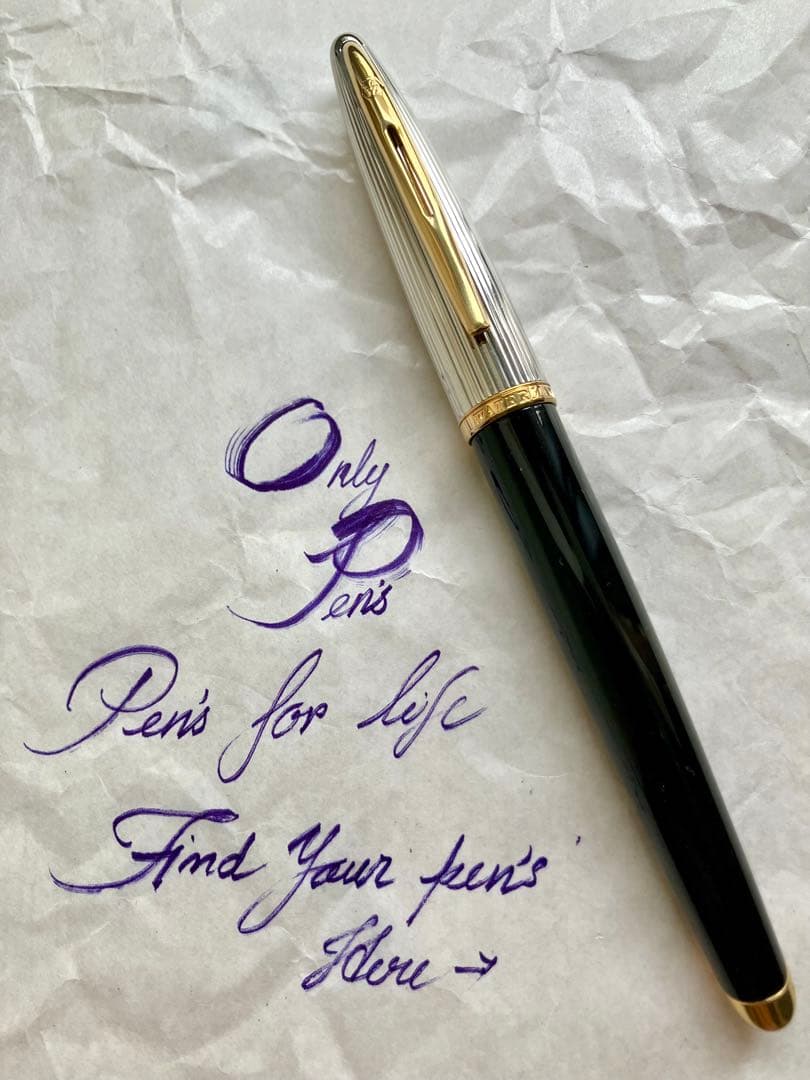 WATERMAN
Only
Pen's
Pen's for life
Find Your pen's
Here →